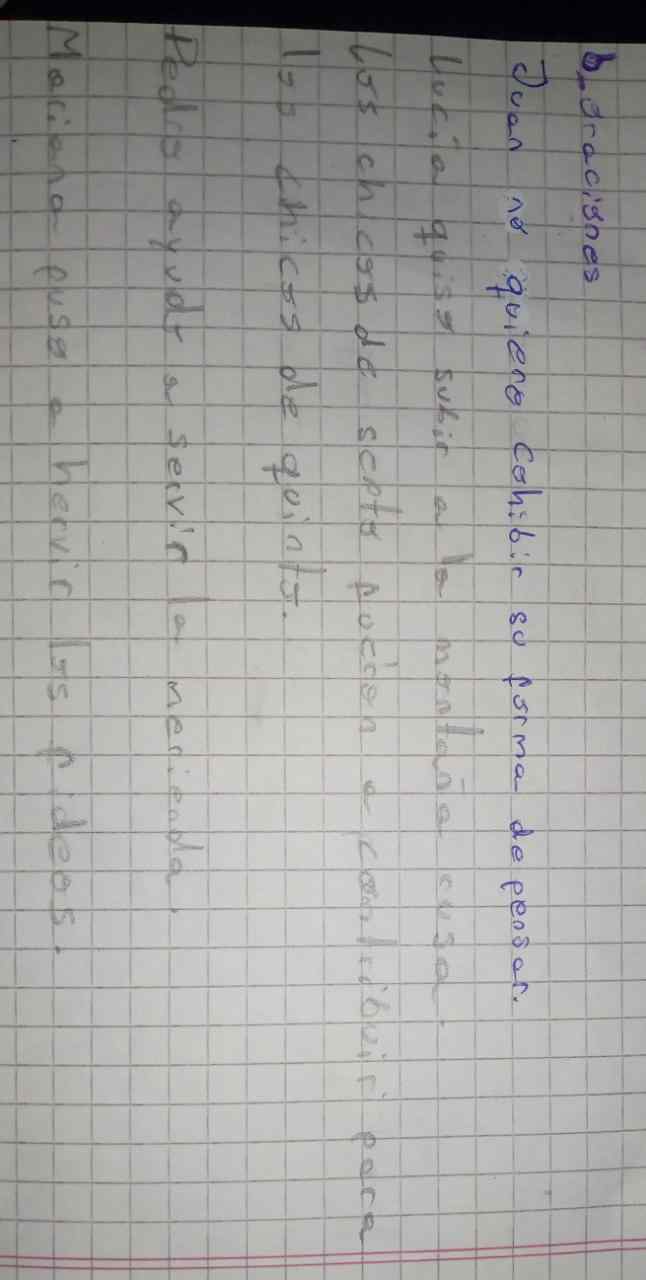 b, oraciones
Juan no quiere cohibir su forma de pensar.
Lucia quiso subir a la montaña rusa.
Los chicos de septo fueron a contribuir para
los chicos de quinto.
Pedro ayudo a servir la merienda.
Mariana puso a hervir los fideos.